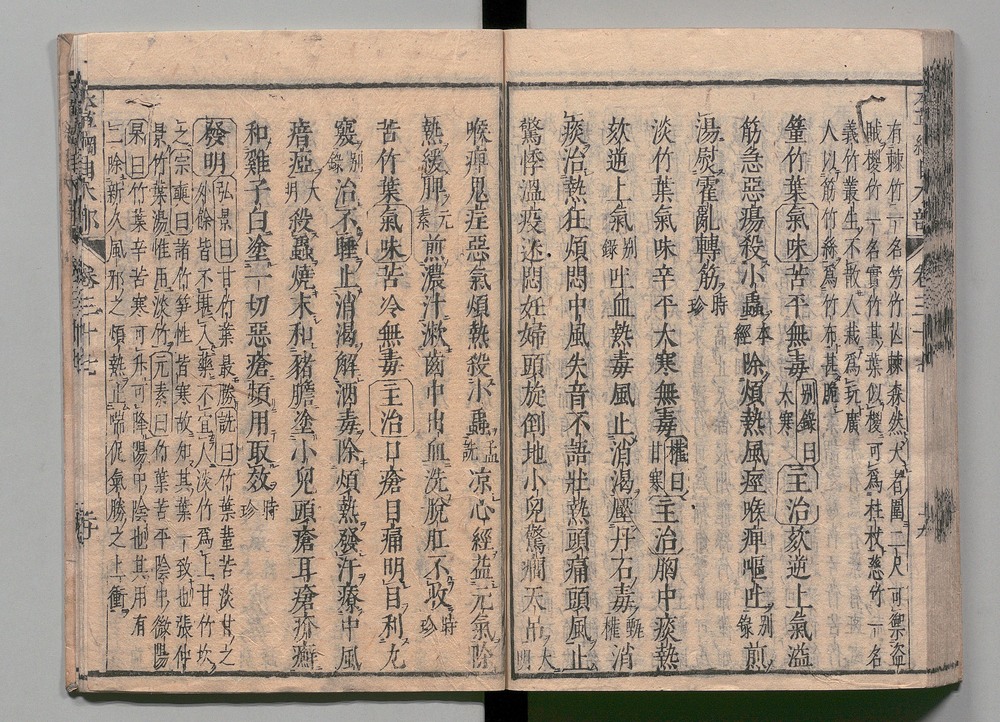 有棘竹一名笏竹芒棘森然大者圍二尺可禦盗
賊椶竹一名實竹其葉似椶可爲柱杖慈竹一名
義竹叢生不散人栽爲玩廣
人以筋竹絲爲竹布甚脆
篁竹葉氣味苦平無毒别錄曰大寒主治欬逆上氣溢
筋急惡瘍殺小蟲本經除煩熱風痙喉痺嘔吐别錄煎
湯熨霍亂轉筋時珍
淡竹葉氣味辛平大寒無毒權曰甘寒主治胸中痰熱
欬逆上氣别錄吐血熱毒風止消渴壓丹石毒甄權消
痰治熱狂煩悶中風失音不語壯熱頭痛頭風止
驚悸溫疫迷悶妊婦頭旋倒地小兒驚癇天吊大明
喉痺鬼疰惡氣煩熱殺小蟲孟詵凉心經益元氣除
熱緩脾元素煎濃汁漱齒中出血洗脫肛不收時珍
苦竹葉氣味苦冷無毒主治口瘡目痛明目利九
竅别錄治不睡止消渴解酒毒除煩熱發汗療中風
瘖瘂大明殺蟲燒末和豬膽塗小兒頭瘡耳瘡疥癬
和雞子白塗一切惡瘡頻用取效時珍
發明弘景曰甘竹葉最勝詵曰竹葉蓳苦淡甘之
外餘皆不堪入藥不宜人淡竹爲上甘竹次
之宗奭曰諸竹笋性皆寒故知其葉一致也張仲
景竹葉湯惟用淡竹元素曰竹葉苦平陰中微陽
杲曰竹葉辛苦寒可升可降陽中陰也其用有
二除新久風邪之煩熱止喘促氣勝之上衝